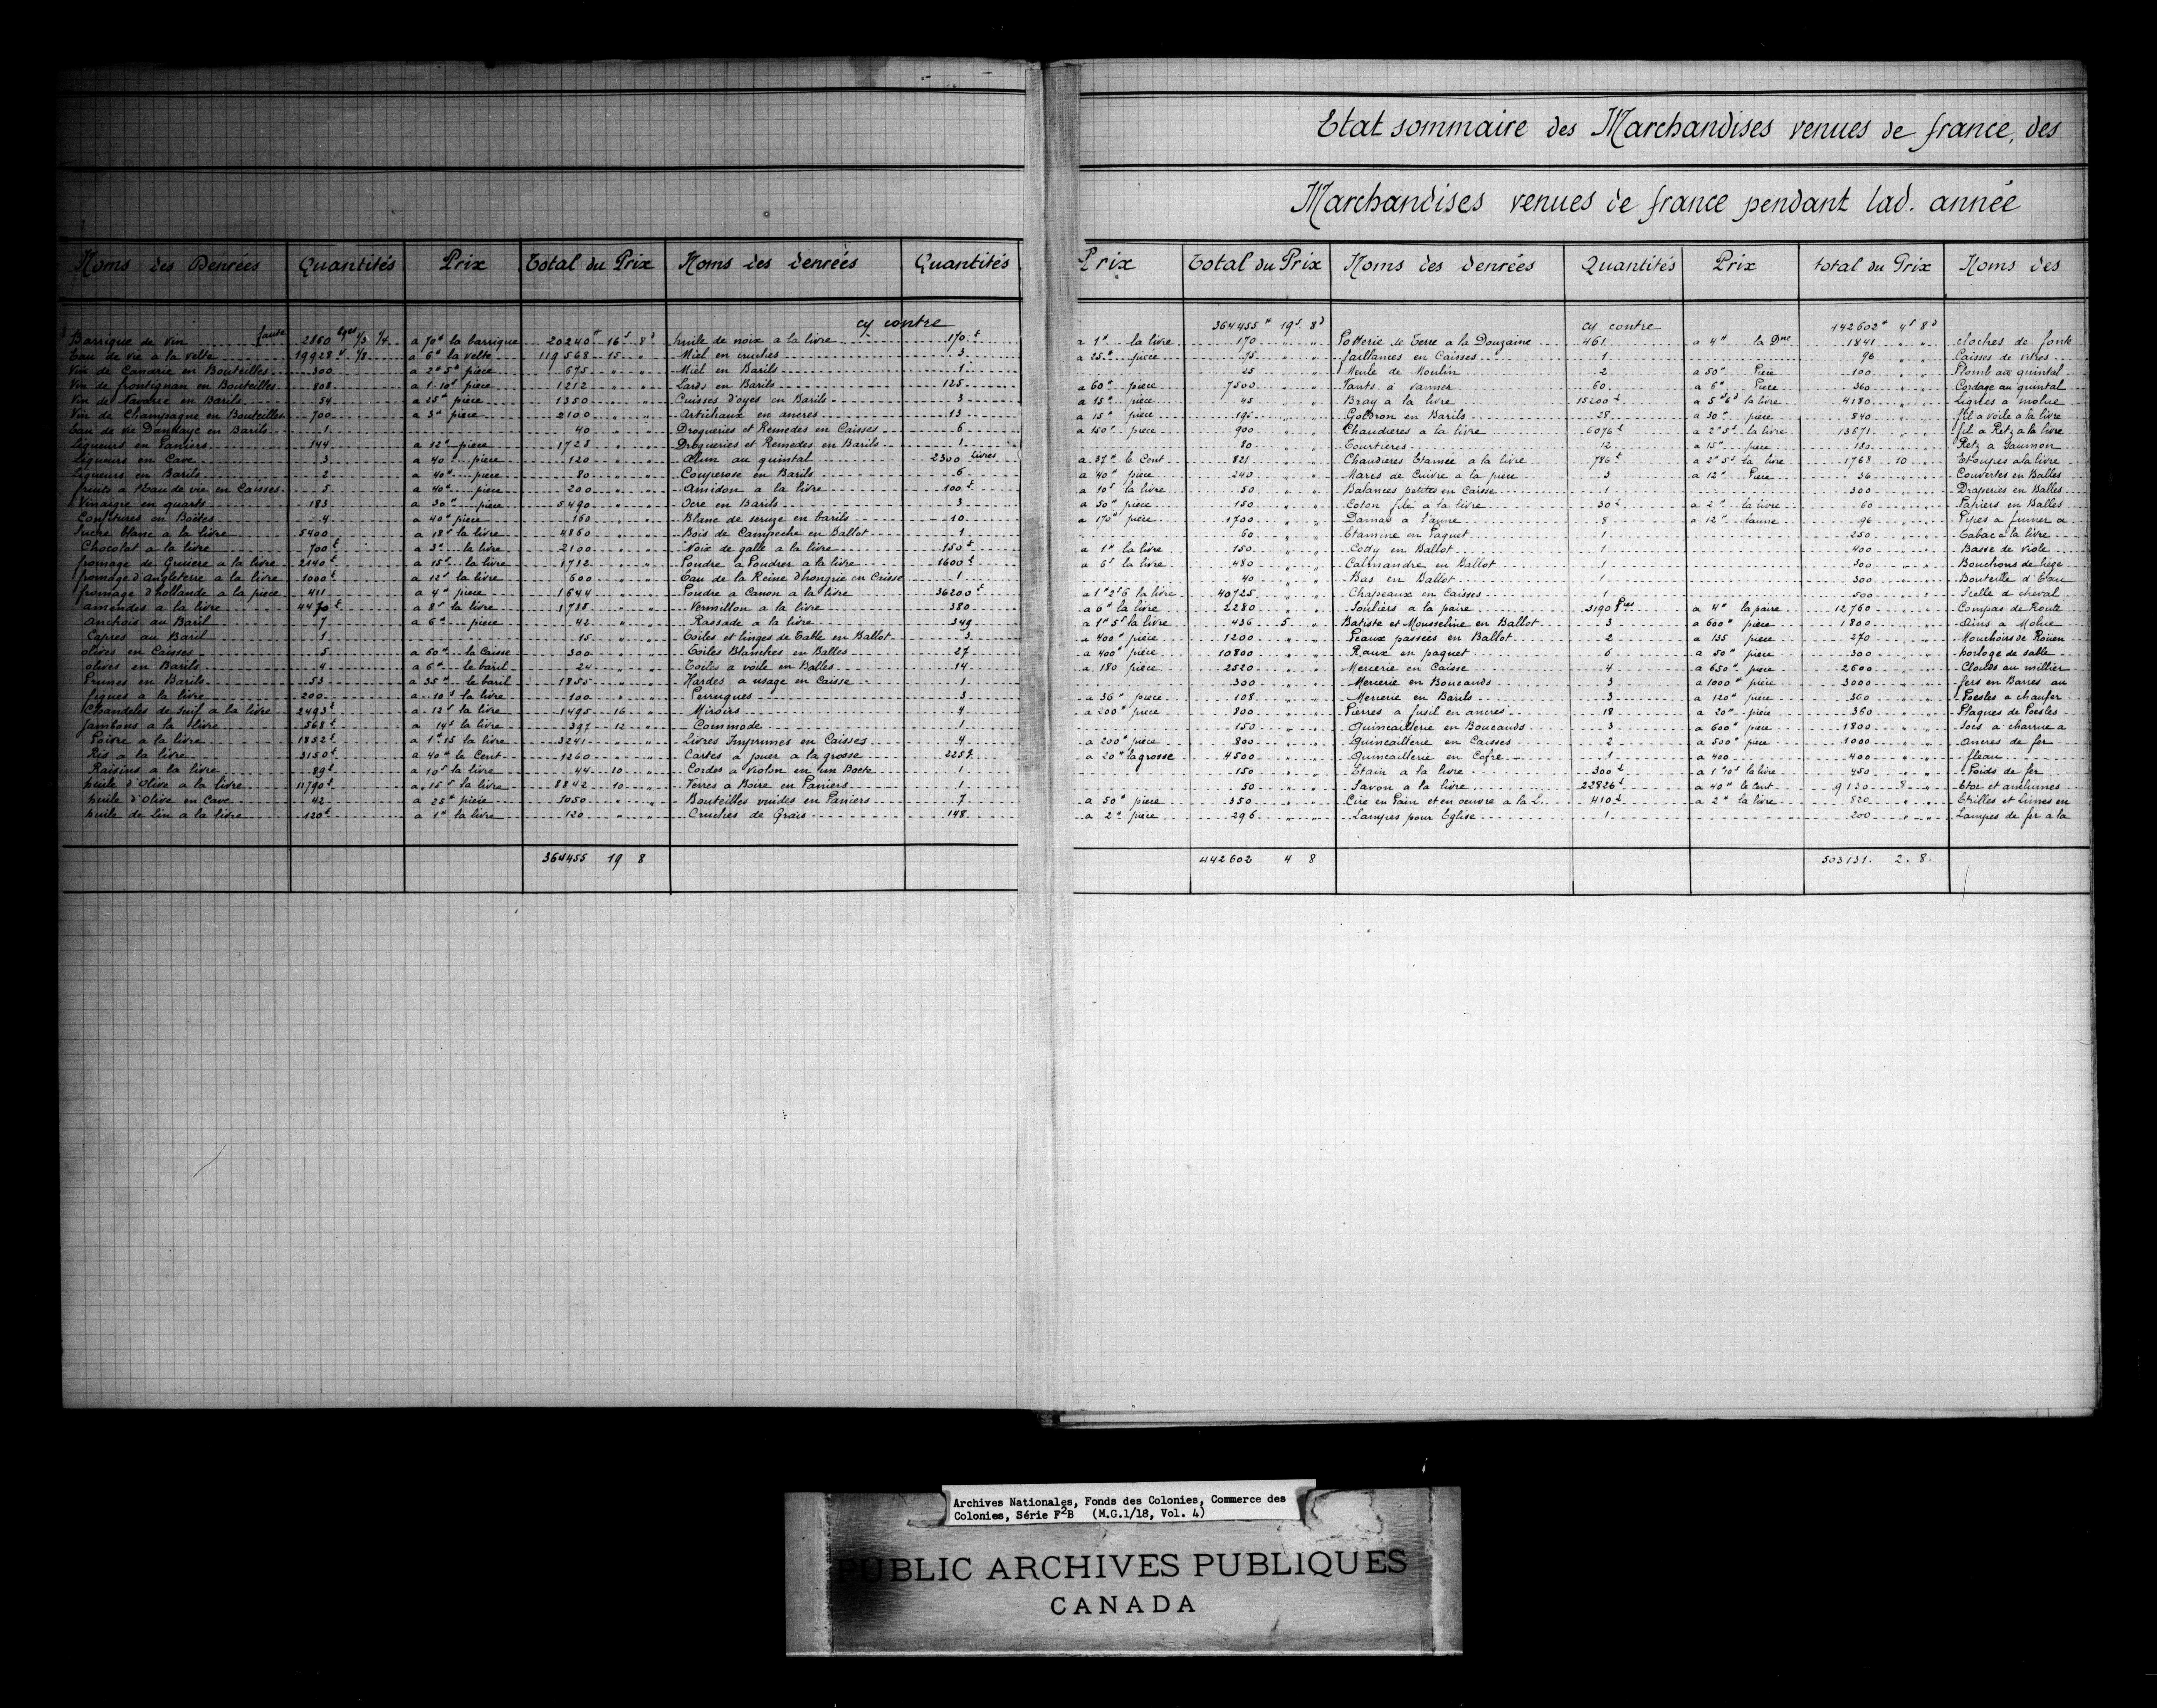 Etat sommaire des Marchandises venues de france, des
Marchandises venues de france pendant lad. année
Noms des Denrées Quantités Prix Total du Prix Noms des denrées Quantités Prix Total du Prix Noms des denrées Quantités Prix total du Prix Noms des
cy contre 364455 19 8 cy contre 442602 4 8
Barrique de vin 2860 1/3 1/4 a 70 la barrique 20240 16 8 huile de noix a la livre 170 a 1 la livre 170 Potterie de Terre a la Douzaine 461 a 4 la Dne 1841 cloches de fonte
Eau de vie a la velte 19928 1/8 a 6 la velte 119568 15 Miel en cruches 3 a 25 piece 75 faillances en Caisses 1 96 Caisses de vitres
Vin de Canarie en Bouteilles 300 a 2 5 piece 675 Miel en Barils 1 25 Meule de Moulin 2 a 50 Piece 100 Plomb au quintal
Vin de frontignan en Bouteilles 808 a 1 10 piece 1212 Lards en Barils 125 a 60 piece 7500 Vants a vanner 60 a 6 Piece 360 Cordage au quintal
Vin de Navarre en Barils 54 a 25 piece 1350 Cuisses d'oyes en Barils 3 a 15 piece 45 Bray a la livre 15200 a 5 6 la livre 4180 Lignes a molue
Vin de Champagne en Bouteilles 700 a 3 piece 2100 artichaux en ancres 13 a 15 piece 195 Godron en Barils 28 a 30 piece 840 fil a voile a la livre
Eau de vie Dandaye en Barils 1 40 Drogueries et Remedes en Caisses 6 a 150 piece 900 Chaudieres a la livre 6076 a 2 5 la livre 13671 fil a Retz a la livre
Liqueurs en Paniers 144 a 12 piece 1728 Drogueries et Remedes en Barils 1 80 Tourtieres 12 a 15 piece 180 Retz a Saumon
Liqueurs en Cave 3 a 40 piece 120 Alun au quintal 2300 livres a 37 le Cent 821 Chaudieres Etamée a la livre 786 a 2 5 la livre 1768 10 Etoupes a la livre
Liqueurs en Barils 2 a 40 piece 80 Couperose en Barils 6 a 40 piece 240 Mares de Cuivre a la piece 3 a 12 Piece 36 Couvertes en Balles
fruits a l'Eau de vie en Caisses 5 a 40 piece 200 Amidon a la livre 100 a 10 la livre 50 Balances petites en Caisse 1 300 Draperies en Balles
Vinaigre en quarts 183 a 30 piece 5490 Ocre en Barils 3 a 50 piece 150 Coton filé a la livre 30 a 2 la livre 60 Papiers en Balles
Confitures en Boëtes 4 a 40 piece 160 Blanc de seruze en barils 10 a 170 piece 1700 Damas a l'aune 8 a 12 laune 96 Pipes a fumer a
Sucre blanc a la livre 5400 a 18 la livre 4860 Bois de Campeche en Ballot 1 60 Etamine en Paquet 1 250 Tabac a la livre
Chocolat a la livre 700 a 3 la livre 2100 Noix de galle a la livre 150 a 1 la livre 150 Cotty en Ballot 1 400 Basse de viole
fromage de Gruiere a la livre 2140 a 15 la livre 1712 Poudre a Poudrer a la livre 1600 a 6 la livre 480 Calmandre en Ballot 1 300 Bouchons de liege
fromage d'Angleterre a la livre 1000 a 12 la livre 600 Eau de la Reine d'hongrie en Caisse 1 40 Bas en Ballot 1 300 Bouteille d'Eau
fromage d'hollande a la piece 411 a 4 piece 1644 Poudre a Canon a la livre 36200 a 1 2 6 la livre 40725 Chapeaux en Caisses 1 500 Scelle d cheval
amendes a la livre 4470 a 8 la livre 1788 Vermillon a la livre 380 a 6 la livre 2280 Souliers a la paire 3190 Pres a 4 la paire 12760 Compas de Route
anchois au Baril 7 a 6 piece 42 Rassade a la livre 349 a 1 5 la livre 436 5 Batiste et Mousseline en Ballot 3 a 600 piece 1800 Dins a Molue
Capres au Baril 1 15 Toiles et linges de Table en Ballot 3 a 400 piece 1200 Peaux passées en Ballot 2 a 135 piece 270 Mouchoirs de Roüen
olives en Caisses 5 a 60 la Caisse 300 Toiles Blanches en Balles 27 a 400 piece 10800 Raux en paquet 6 a 50 piece 300 horloge de sable
olives en Barils 4 a 6 le baril 24 Toiles a voile en Balles 14 a 180 piece 2520 Mercerie en Caisse 4 a 650 piece 2600 Clouds au millier
Prunes en Barils 53 a 35 le baril 1855 Hardes a usage en Caisse 1 300 Mercerie en Boucauds 3 a 1000 piece 3000 fers en Barres au
figues a la livre 200 a 10 la livre 100 Perruques 3 a 36 piece 108 Mercerie en Barils 3 a 120 piece 360 Poesles a chaufer
Chandeles de suif a la livre 2493 a 12 la livre 1495 16 Miroirs 4 a 200 piece 800 Pierres a fusil en ancres 18 a 20 piece 360 Plaques de Poesles
Jambons a la livre 568 a 14 la livre 397 12 Commode 1 150 Quincaillerie en Boucauds 3 a 600 piece 1800 Socs a charrue a
Poivre a la livre 1852 a 1 15 la livre 3241 Livres Imprimés en Caisses 4 a 200 piece 800 Quincaillerie en Caisses 2 a 500 piece 1000 ancres de fer
Ris a la livre 3150 a 40 le Cent 1260 Cartes a jouer a la grosse 225 a 20 la grosse 4500 Quincaillerie en Cofre 1 a 400 400 fleau
Raisins a la livre 89 a 10 la livre 44 10 Cordes a Violon en un Boete 1 150 Etain a la livre 300 a 1 10 la livre 450 Poids de fer
huile d'Olive a la livre 11790 a 15 la livre 8842 10 Verres a Boire en Paniers 1 50 Savon a la livre 22826 a 40 le Cent 9130 8 Etoc et anclumes
huile d'Olive en Cave 42 a 25 piece 1050 Bouteilles vuides en Paniers 7 a 50 piece 350 Cire en Pain et en oeuvre a la L. 410 a 2 la livre 820 Etrilles et Limes en
huile de Lin a la livre 120 a 1 la livre 120 Cruches de Grais 148 a 2 piece 296 Lampes pour Eglise 1 200 Lampes de fer a la
364455 19 8 442602 4 8 503131. 2. 8.
Archives Nationales, Fonds des Colonies, Commerce des
Colonies, Série F2B (M.G.1/18, Vol. 4)
PUBLIC ARCHIVES PUBLIQUES
CANADA